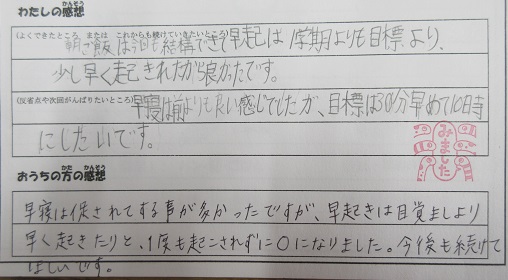 わたしの感想
かんそう
(よくできたところ または これからも続けていきたいところ)
朝ご飯は今回も結構できて早起は1学期よりも目標より、
少し早く起きれたから良かったです。
(反省点や次回がんばりたいところ)
早寝は前よりも良い感じでしたが、目標は30分早めて10時
にしたいです。
みました
おうちの方の感想
かた かんそう
早寝は促されてする事が多かったですが、早起きは目覚ましより
早く起きたりと、1度も起こされずに○になりました。今後も続けて
ほしいです。